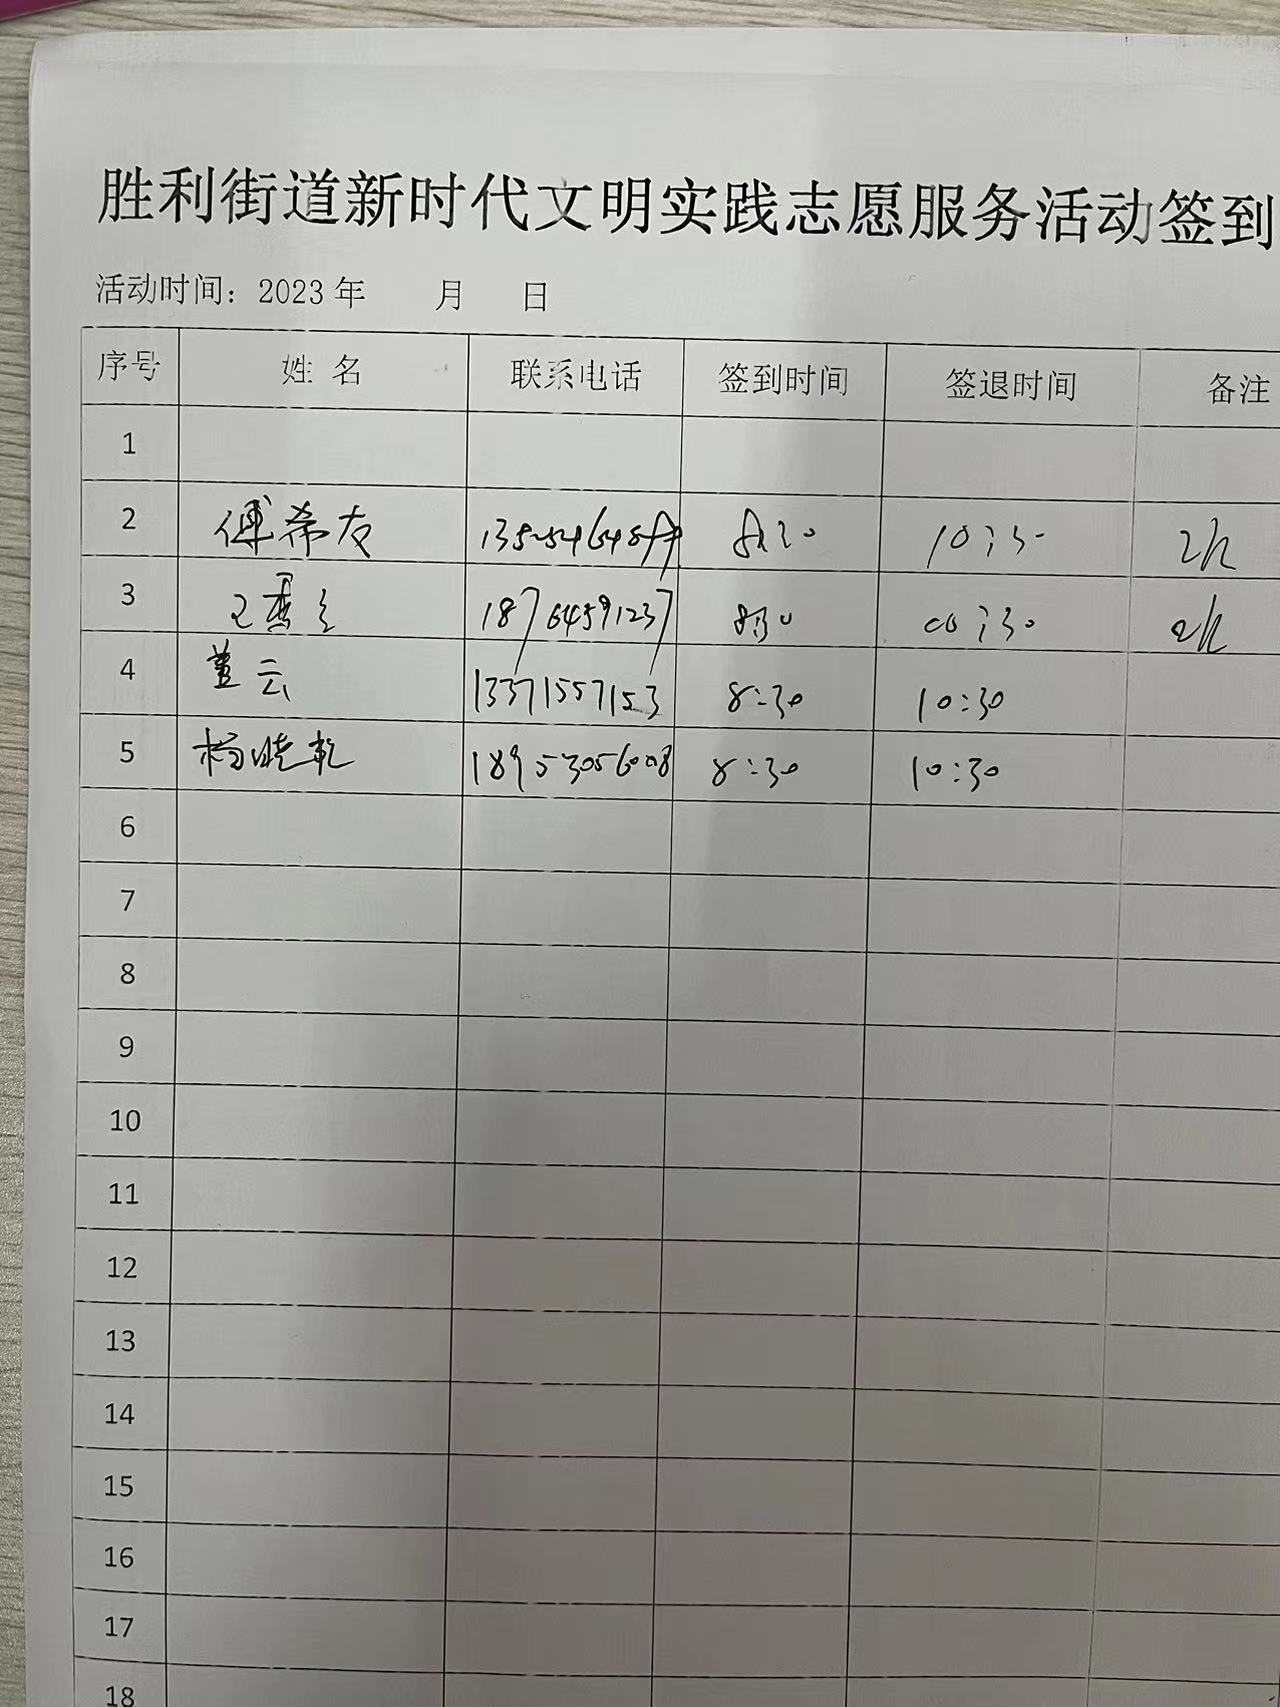 胜利街道新时代文明实践志愿服务活动签到
活动时间：2023年 月 日
序号 姓 名 联系电话 签到时间 签退时间 备注
1
2 傅希友 8:30 10:30 2h
3 18764591237 8:30 10:30 2h
4 董云 13371557153 8:30 10:30
5 杨晓乾 18953056008 8:30 10:30
6
7
8
9
10
11
12
13
14
15
16
17
18